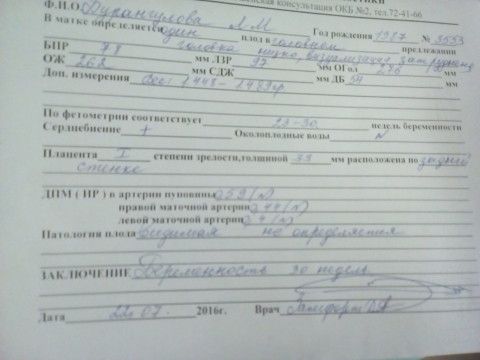 консультация ОКБ №2, тел.72-41-66
Ф.И.О. Л М Год рождения 1987 № 3553
В матке определяется один плод в головном предлежании
БПР 78 мм ЛЗР 97 мм ОГол мм
головка низко, визуализация затруднена
ОЖ 262 мм СДЖ мм ДБ 54 мм
Доп. измерения 1448-1489гр
По фетометрии соответствует 29-30 недель беременности
Сердцебиение + Околоплодные воды N
Плацента I степени зрелости,толщиной 33 мм расположена по задней
стенке
ДПМ ( ИР ) в артерии пуповины 0,59 (N)
правой маточной артерии 0,44 (N)
левой маточной артерии 0,4 (N)
Патология плода видимая не определяется
ЗАКЛЮЧЕНИЕ Беременность 30 недель
Дата 22 07. 2016г. Врач